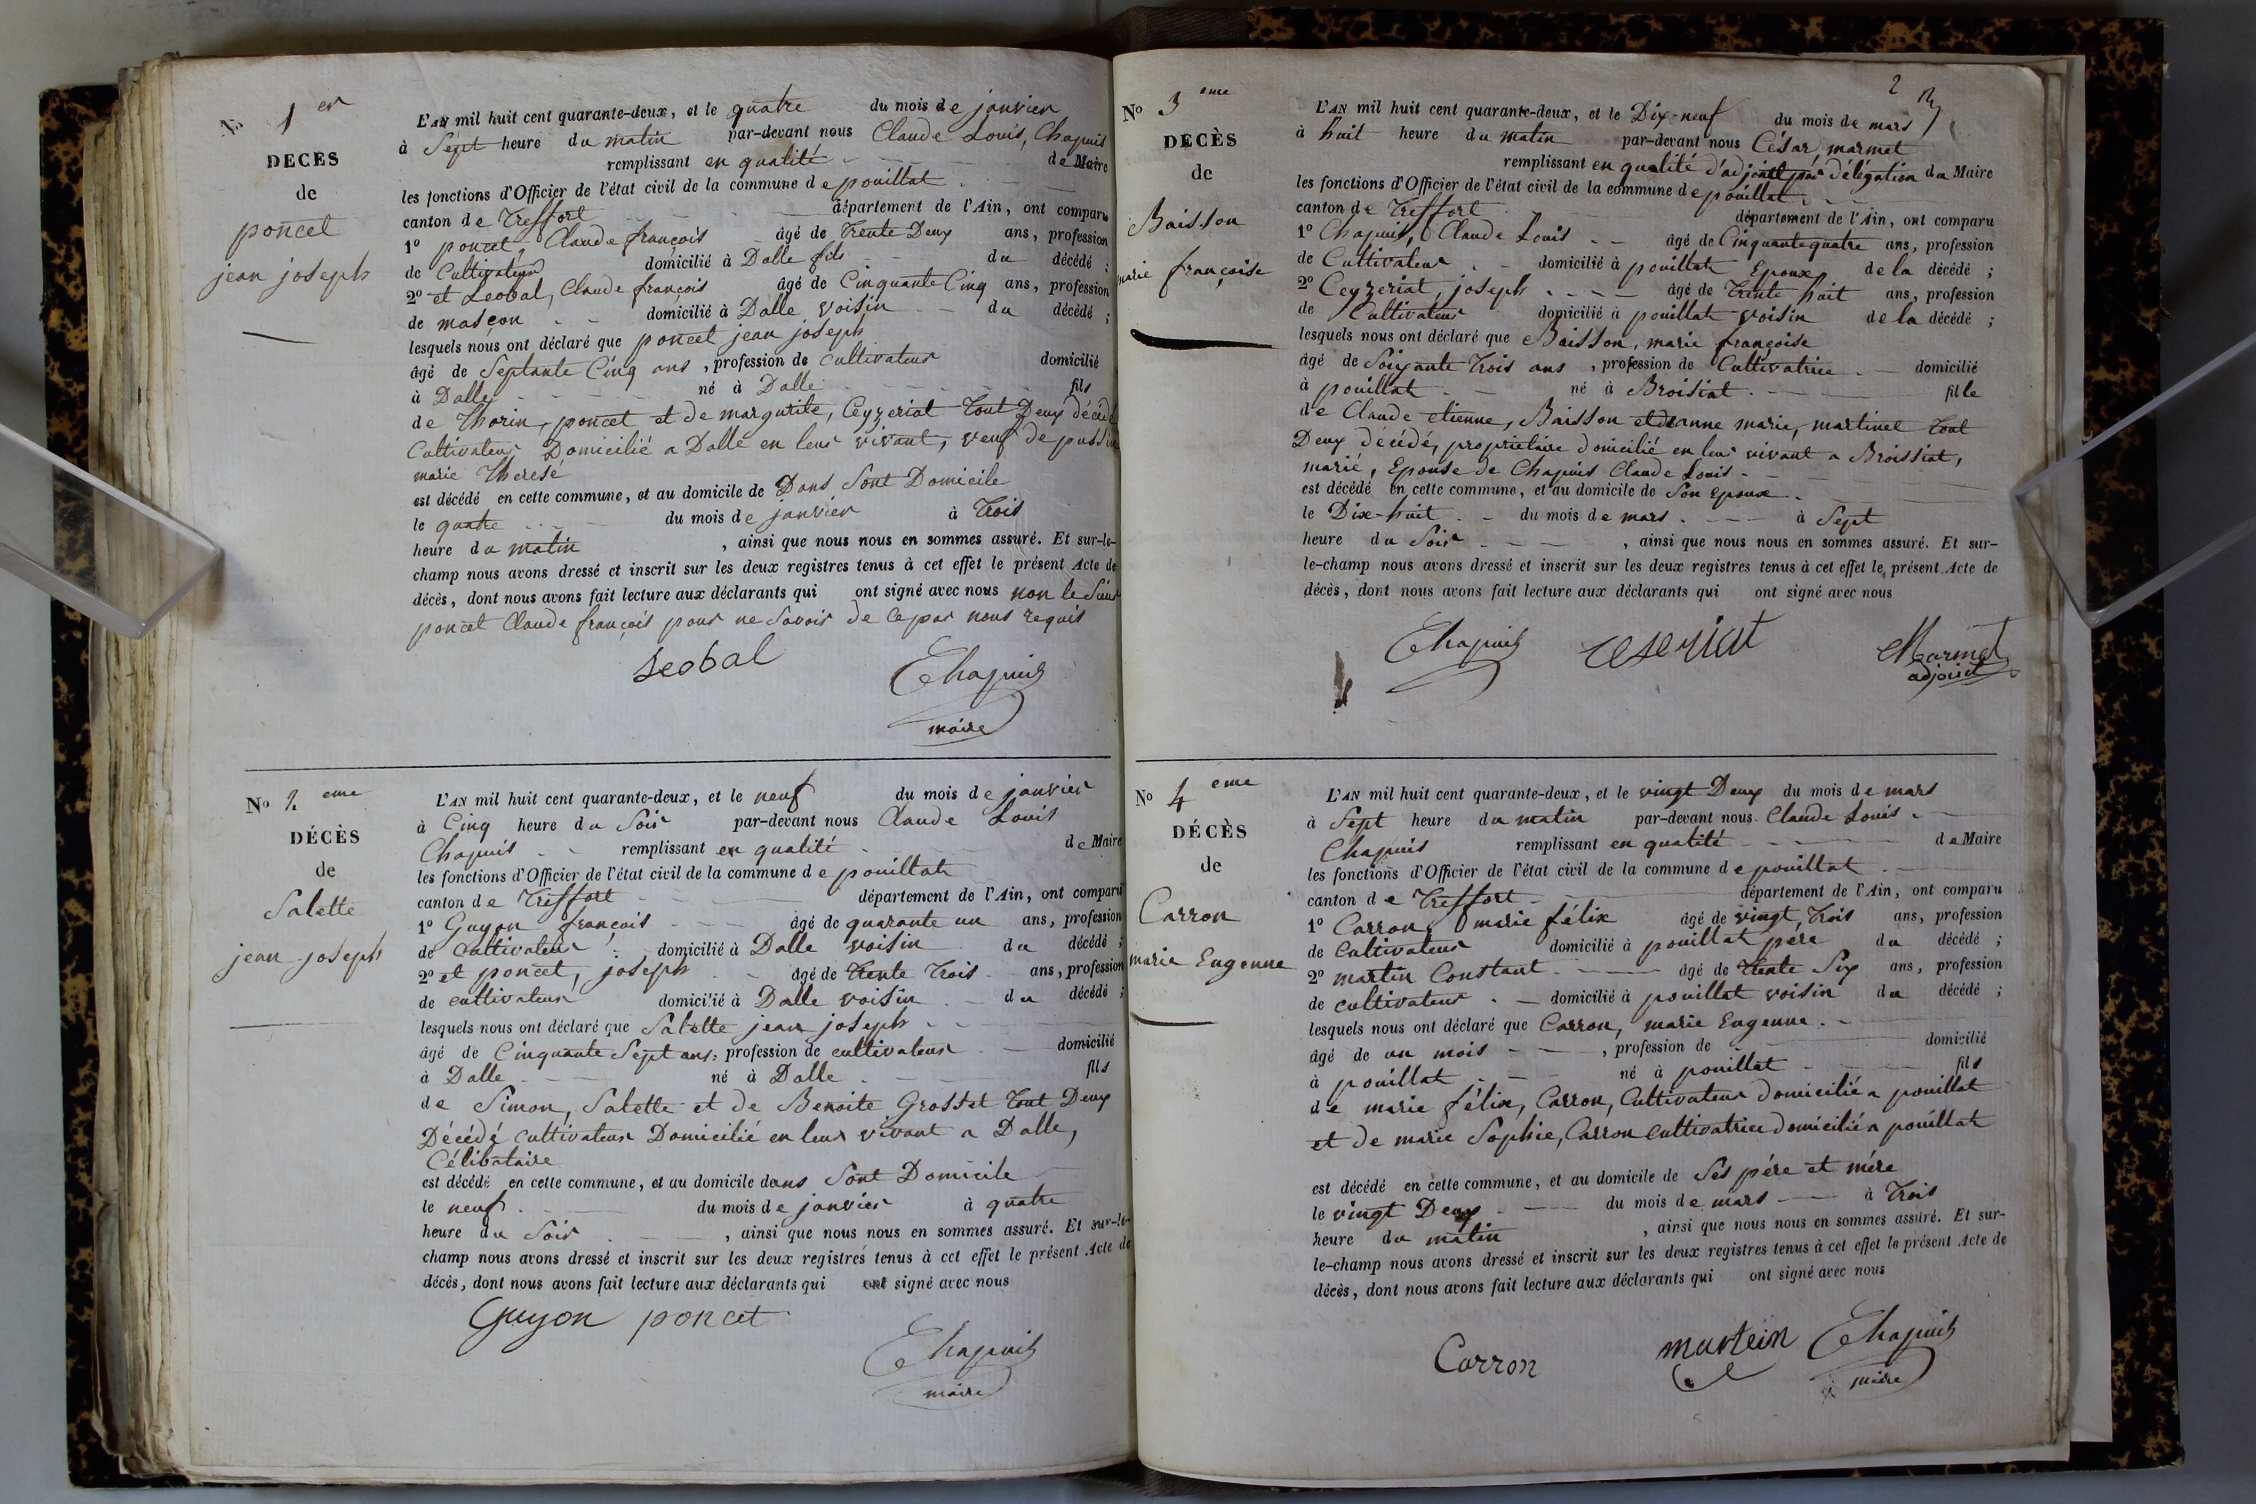 No 1er
DECÈS
de
poncet
jean joseph
L'AN mil huit cent quarante-deux, et le quatre du mois de janvier
à Sept heure du matin par-devant nous Claude Louis, Chapuis
remplissant en qualité de Maire
les fonctions d'Officier de l'état civil de la commune de pouillat
canton de Treffort département de l'Ain, ont comparu
1o poncet, Claude françois âgé de trente Deux ans, profession
de Cultivateur domicilié à Dalle fils du décédé ;
2o et Leobal, Claude françois âgé de Cinquante Cinq ans, profession
de masçon domicilié à Dalle voisin du décédé ;
lesquels nous ont déclaré que poncet jean joseph
âgé de Septante Cinq ans, profession de Cultivateur domicilié
à Dalle né à Dalle fils
de Thorin, poncet et de margutite, Ceyzeriat tout Deux décédé
Cultivateur Domicilié a Dalle en leur vivant, veuf de
marie Therese
est décédé en cette commune, et au domicile de Dans Sont Domicile
le quatre du mois de janvier à Trois
heure du matin, ainsi que nous nous en sommes assuré. Et sur-le-
champ nous avons dressé et inscrit sur les deux registres tenus à cet effet le présent Acte de
décès, dont nous avons fait lecture aux déclarants qui ont signé avec nous non le Sieur
poncet Claude françois pour ne Savoir de ce par nous requis
Leobal Chapuis
maire
No 2eme
DÉCÈS
de
Salette
jean joseph
L'AN mil huit cent quarante-deux, et le neuf du mois de janvier
à Cinq heure du Soir par-devant nous Claude Louis
Chapuis remplissant en qualité de Maire
les fonctions d'Officier de l'état civil de la commune de pouillat
canton de Treffort département de l'Ain, ont comparu
1o Guyon françois âgé de quarante un ans, profession
de Cultivateur domicilié à Dalle voisin du décédé ;
2o et poncet, joseph âgé de trente Trois ans, profession
de cultivateur domicilié à Dalle voisin du décédé ;
lesquels nous ont déclaré que Salette jean joseph
âgé de Cinquante Sept ans, profession de cultivateur domicilié
à Dalle né à Dalle fils
de Simon, Salette et de Benoite Grosset tout Deux
Décédé cultivateur Domicilié en leur vivant a Dalle,
Célibataire
est décédé en cette commune, et au domicile dans Sont Domicile
le neuf du mois de janvier à quatre
heure du Soir, ainsi que nous nous en sommes assuré. Et sur-le-
champ nous avons dressé et inscrit sur les deux registres tenus à cet effet le présent Acte de
décès, dont nous avons fait lecture aux déclarants qui ont signé avec nous
Guyon poncet
Chapuis
maire
2
No 3eme
DÉCÈS
de
Baisson
marie françoise
L'AN mil huit cent quarante-deux, et le Dix-neuf du mois de mars
à huit heure du matin par-devant nous César marmet
remplissant en qualité d'adjoint par délégation du Maire
les fonctions d'Officier de l'état civil de la commune de pouillat
canton de Treffort département de l'Ain, ont comparu
1o Chapuis, Claude Louis âgé de Cinquante quatre ans, profession
de Cultivateur domicilié à pouillat Epoux de la décédé ;
2o Ceyzeriat, joseph âgé de trente huit ans, profession
de Cultivateur domicilié à pouillat voisin de la décédé ;
lesquels nous ont déclaré que Baisson, marie françoise
âgé de Soixante Trois ans, profession de Cultivatrice domicilié
à pouillat né à Broisiat fille
de Claude etienne, Baisson et de anne marie, martinet tout
Deux décédé, proprietaire domicilié en leur vivant a Broissiat,
marié, Epouse de Chapuis Claude Louis
est décédé en cette commune, et au domicile de Son Epoux
le Dix-huit du mois de mars à Sept
heure du Soir, ainsi que nous nous en sommes assuré. Et sur-
le-champ nous avons dressé et inscrit sur les deux registres tenus à cet effet le présent Acte de
décès, dont nous avons fait lecture aux déclarants qui ont signé avec nous
Chapuis ceseriat Marmet
adjoint
No 4eme
DÉCÈS
de
Carron
marie Eugenne
L'AN mil huit cent quarante-deux, et le vingt Deux du mois de mars
à Sept heure du matin par-devant nous Claude Louis
Chapuis remplissant en qualité de Maire
les fonctions d'Officier de l'état civil de la commune de pouillat
canton de Treffort département de l'Ain, ont comparu
1o Carron, marie félix âgé de vingt Trois ans, profession
de Cultivateur domicilié à pouillat pére du décédé ;
2o martin Constant âgé de trente Six ans, profession
de cultivateur domicilié à pouillat voisin du décédé ;
lesquels nous ont déclaré que Carron, marie Eugenne
âgé de un mois, profession de domicilié
à pouillat né à pouillat fils
de marie félix, Carron, Cultivateur domicilié a pouillat
et de marie Sophie, Carron cultivatrice domicilié a pouillat
est décédé en cette commune, et au domicile de Ses pére et mére
le vingt Deux du mois de mars à Trois
heure du matin, ainsi que nous nous en sommes assuré. Et sur-
le-champ nous avons dressé et inscrit sur les deux registres tenus à cet effet le présent Acte de
décès, dont nous avons fait lecture aux déclarants qui ont signé avec nous
Carron martein Chapuis
maire